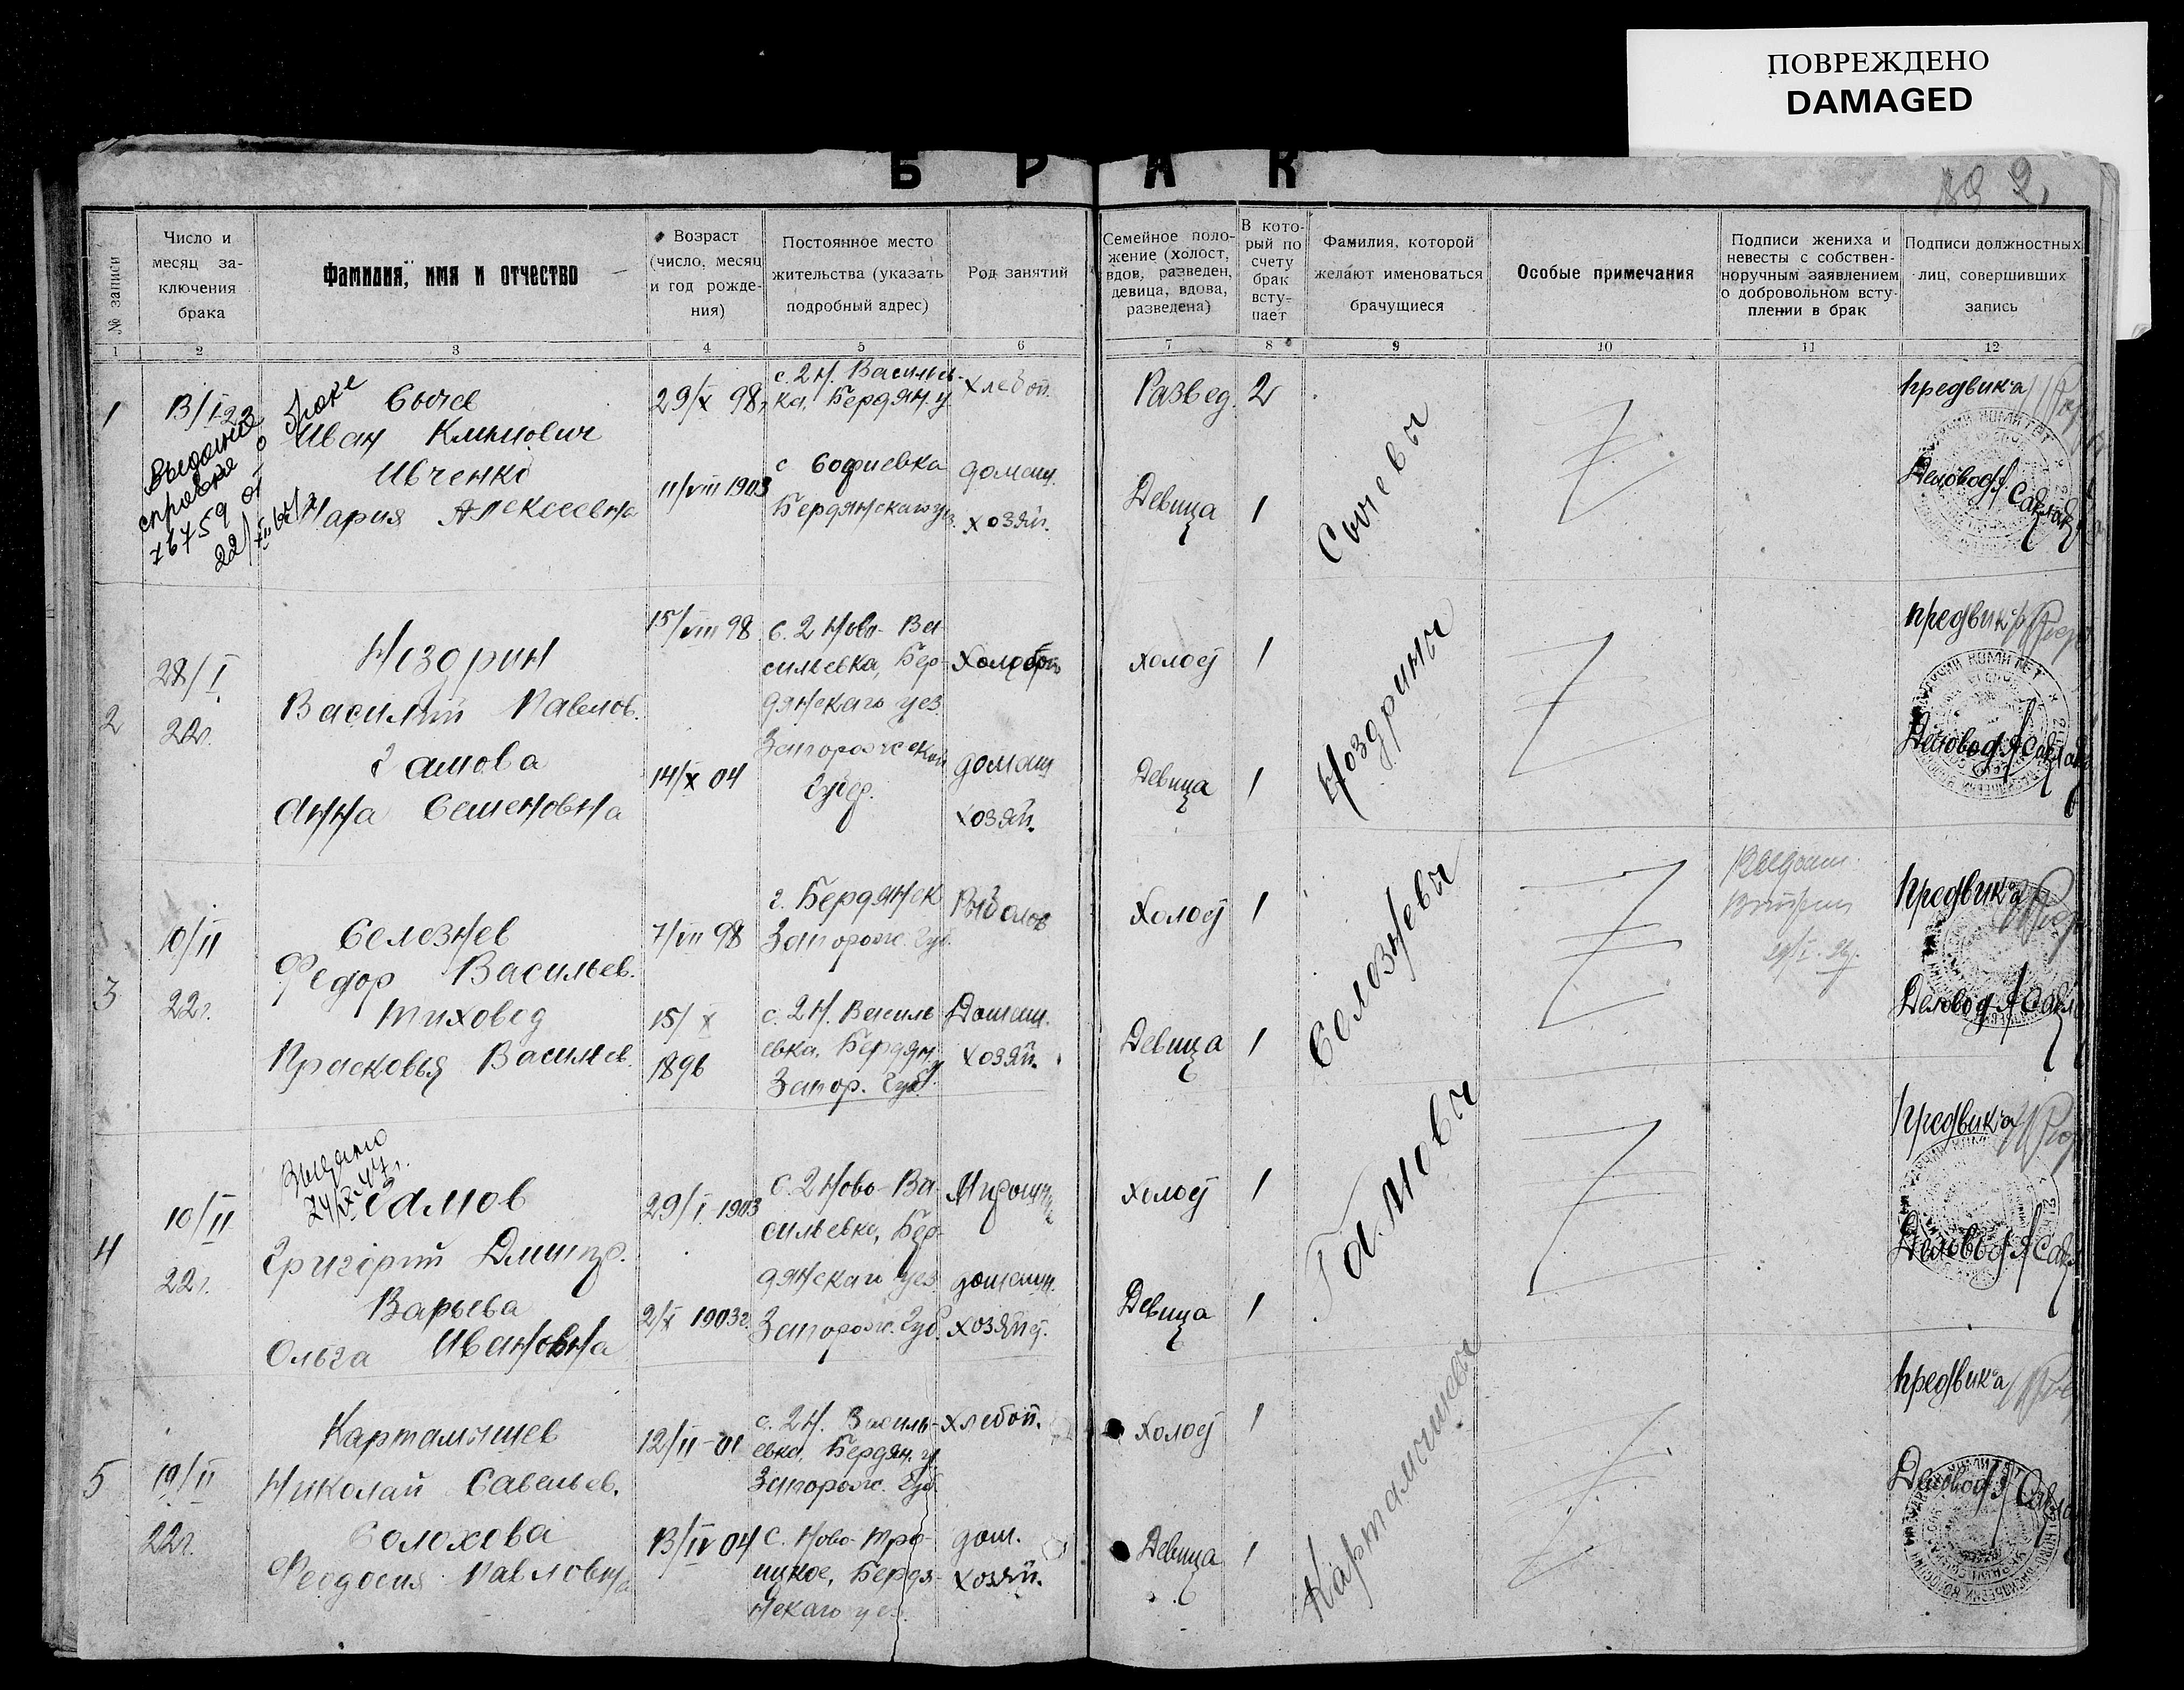 ПОВРЕЖДЕНО
DAMAGED
БРАК
2
№ записи
Число и
месяц за-
ключения
брака
Фамилия, имя и отчество
Возраст
(число, месяц
и год рожде-
ния)
Постоянное место
жительства (указать
подробный адрес)
Род занятий
Семейное поло-
жение (холост,
вдов, разведен,
девица, вдова,
разведена)
В кото-
рый по
счету
брак
всту-
пает
Фамилия, которой
желают именоваться
брачущиеся
Особые примечания
Подписи жениха и
невесты с собствен-
норучным заявлением
о добровольном всту-
плении в брак
Подписи должностных
лиц, совершивших
запись
1 2 3 4 5 6 7 8 9 10 11 12
1
13/I 22
справка о браке
Сычев
Иван Климович
Ивченко
Мария Алексеевна
29/X 98
с. 2 Н. Василев-
ка, Бердян. у
хлебоп.
Развед. 2
11/VIII 1903
с Софиевка
Бердянскаго уез.
домаш.
хозяй.
Девица 1
Сычевы
предвик-а
Деловод
2
28/I
22г.
Ноздрин
Василий Павлов.
Гамова
Анна Семеновна
15/VIII 98
14/X 04
с. 2 Ново-Ва-
сильевка, Бер-
дянскаго уез.
Запорожской
Губер.
домаш
хозяй.
холост 1
Девица 1
Ноздрины
предвик-а
Деловод
3
10/II
22г.
Селезнев
Федор Васильев.
Тиховод
Прасковья Васильев.
7/VII 98
15/X
1896
г. Бердянск
Запорож. Губ.
с. 2 Н. Василь
евка, Бердян. у
Запор. Губ.
Рыболов
Домаш.
хозяй.
Холост 1
Девица 1
Селезневы
предвик-а
Деловод
4
10/II
22г.
Выдано
Гамов
Григорий Дмитр.
Варыева
Ольга Ивановна
29/I 1903
2/X 1903г.
с. 2 Ново-Ва-
сильевка, Бер-
дянскаго уез
Запорож. Губ.
домашн.
хозяйст.
холост 1
Девица 1
Гамовы
предвик-а
Деловод
5
19/II
22г.
Картамышев
Николай Савельев.
Солохова
Феодосия Павловна
12/II-01
13/IV 04
с. 2 Н. Василь-
евка, Бердян. у.
Запорож. Губ.
с. Ново-Тро-
ицкое, Бердя-
нскаго уез.
хлебоп.
дом.
хозяй.
Холост 1
Девица 1
Картамышевы
предвик-а
Деловод